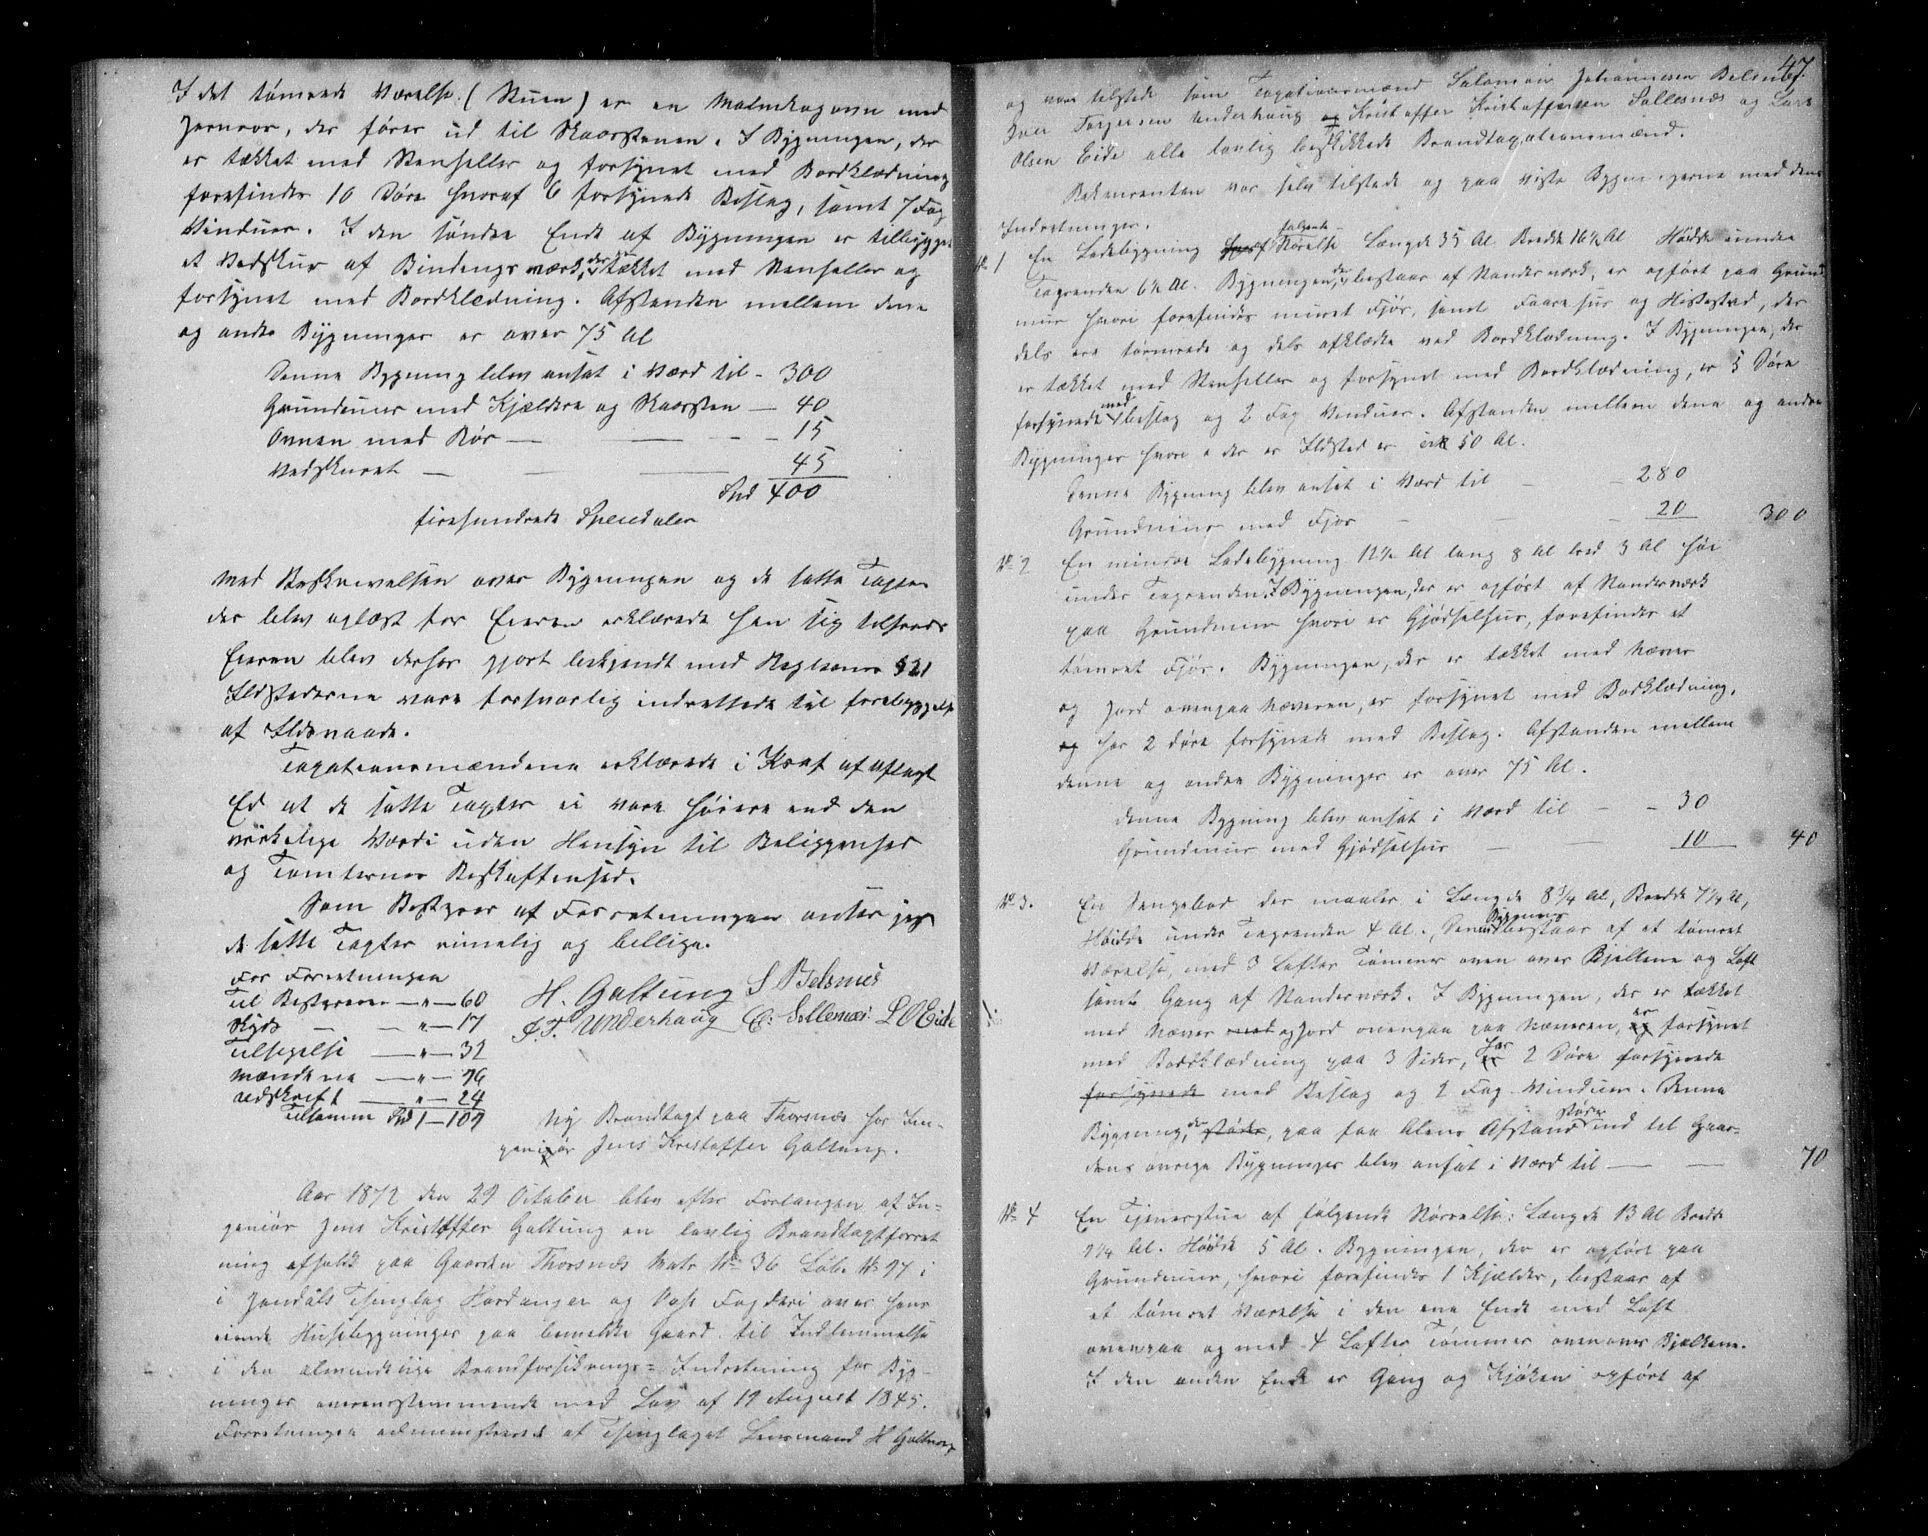 I det tømrede Værelse (Stuen) er en Malmkagovn med
Jernrør, der fører ud til Skorstenen. I Bygningen, der
er tækket med Stenheller og forsynet med Bordklædning
forefindes 10 Døre hvoraf 6 forsynede Beslag, samt 7 Fag
Vinduer. I den søndre Ende af Bygningen er tilbygget
et Vedskur af Bindingsværk, der er tækket med Stenheller og
forsynet med Bordklædning. Afstanden mellem dene
og andre Bygninger er over 75 Al
Denne Bygning blev ansat i Værd til - 300
Grundmur med Kjældere og Skorsten — 40
Ovnen med Rør — — - - 15
Vedskuret — — — 45
Spd 400
firehundrede Speciedaler
Med Beskrivelsen over Bygningen og de satte Taxter
der blev oplæst for Eieren erklærede han sig tilfreds
Eieren blev derhos gjort bekjendt med Reglerne § 21
Ildstederne vare forsvarlig indrettede til forebyggelse
af Ildsvaade.
Taxationsmændene erklærede i Kraf af aflagt
Ed at de satte Taxter ei vare høiere end den
virkelige Værdi uden Hensyn til Beliggenhed
og Tomternes Beskaffenhed.
Som Bestyrer af Forretningen anser jeg
de satte Taxter rimelig og billige.
For Forretningen
Til Bestyreren — " — 60
Skyds — — " — 17
Tilsigelse — " — 32
Mændene — " — 96
Udskrift — " — 24
Tilsamm Spd 1 — 109
H. Galtung S Belsnes
J.T. Underhaug C: Sollesnæs L O Eide
Ny Brandtaxt paa Thorsnæs for In-
geniør Jens Kristoffer Galtung.
Aar 1872 den 29 October blev efter Forlangen af In-
geniør Jens Kristoffer Galtung en lovlig Brandtaxtforret
ning afholdt paa Gaarden Thorsnæs Matr No 36 Løb. No 97 i
i Jondals Thinglag Hardanger og Vos Fogderi over hans
eiende Husebygninger paa bemeldte Gaard til Indlemmelse
i den almindelige Brandforsikrings= Indretning for Byg-
ninger overensstemmende med Lov af 19 August 1845.
Forretningen administreret af Thinglagets Lensmand H Galtung
47
og vare tilstede som Taxationsmænd Salomon Johannesen Belsnæs
Iver Torgersen Underhaug og Kristoffer Kristoffersen Sollesnæs og Lars
Olsen Eide alle lovlig beskikkede Brandtaxationsmænd.
Rekvirenten var selv tilstede og paa viste Bygningerne med deres
Indretninger.
No 1 En Ladebygning hvoraf følgende Størelse Længde 35 Al Bredde 16½ Al Høide under
Tagrenden 6½ Al. Bygningen, der bestaar af Stenderværk, er opført paa Grund
mur hvori forefindes muret Fjøs, samt Faarehus og Hestestad, der
dels ere tømrede og dels afklædte ved Bordklædning. I Bygningen, der
er tækket med Stenheller og forsynet med Bordklædning, er 5 Døre
forsynede med beslag og 2 Fag Vinduer. Afstanden mellem dene og andre
Bygninger hvori der er Ildsted er ck 50 Al.
Denne Bygning blev ansat i Værd til — - 280
Grundmur med Fjøs — — - 20 300
No 2 En mindre Ladebygning 12½ Al lang 8 Al bred 3 Al høi
under Tagrenden. I Bygningen, der er opført af Stenderværk
paa Grundmur hvori er Gjødselhus, forefindes et
tømret Fjøs. Bygningen, der er tækket med Næver
og Jord ovenpaa Næveren, er forsynet med Bordklædning,
og har 2 døre forsynede med Beslag. Afstanden mellem
denne og andre Bygninger er over 75 Al.
denne Bygning blev ansat i Værd til — — 30
Grundmur med Gjødselhus — — 10 40
No 3. En Sengebod der maaler i Længde 8¾ Al, Bredde 7¼ Al,
Høide under Tagrenden 4 Al., Denne Bygning bestaar af et tømret
Værelse, med 3 Lofter Tømmer oven over Bjelkene og Loft
samt Gang af Stenderværk. I Bygningen, der er tækket
med Næver med og Jord ovenpaa paa Næveren, og er forsynet
med Bordklædning paa 3 Sider, er har 2 Døre forsynede
forsynede med Beslag og 2 Fag Vinduer. Denne
Bygning, der støder, paa faa Alens Afstand støder ind til Gaar=
dens øvrige Bygninger blev ansat i Værd til — — 70
No 4 En Tjenerstue af følgende Størrelse: Længde 13 Al Bredde
9¼ Al. Høide 5 Al. Bygningen, der er opført paa
Grundmur, hvori forefindes 1 Kjælder, bestaar af
et tømret Værelse i den ene Ende med Loft
ovenpaa og med 4 Lofter Tømmer ovenover Bjelkene.
I den anden Ende er Gang og Kjøken opført af